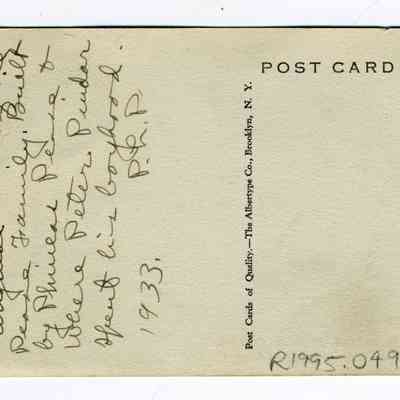 Pease Family. Built
by Phineas Pease &
Where Peter Pindar
spent his boyhood.
P.L.P
1933.
Post Cards of Quality.—The Albertype Co., Brooklyn, N. Y.
POST CARD
R1995.049